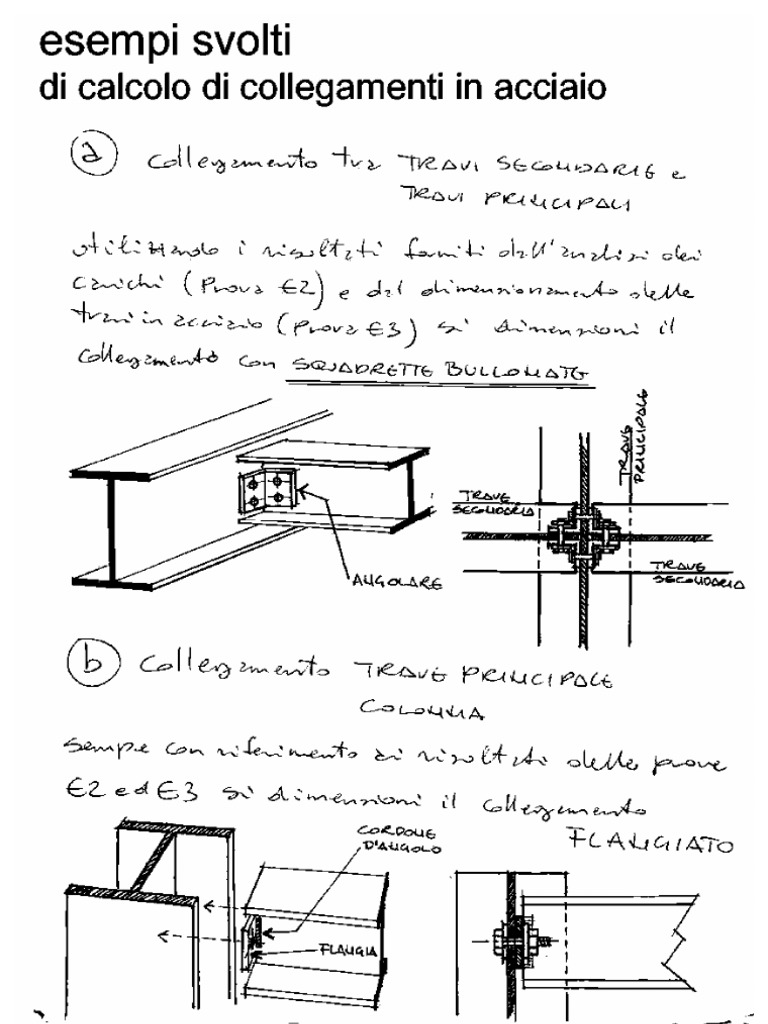 esempi svolti
di calcolo di collegamenti in acciaio
a collegamento tra TRAVI SECONDARIE e
TRAVI PRINCIPALI
utilizzando i risultati forniti dall'analisi dei
carichi (Prova E2) e dal dimensionamento delle
travi in acciaio (Prova E3) si dimensioni il
collegamento con SQUADRETTE BULLONATE
ANGOLARE
TRAVE
PRINCIPALE
TRAVE
SECONDARIA
TRAVE
SECONDARIA
b collegamento TRAVE PRINCIPALE
COLONNA
Sempre con riferimento ai risultati delle prove
E2 ed E3 si dimensioni il collegamento
FLANGIATO
CORDONE
D'ANGOLO
FLANGIA